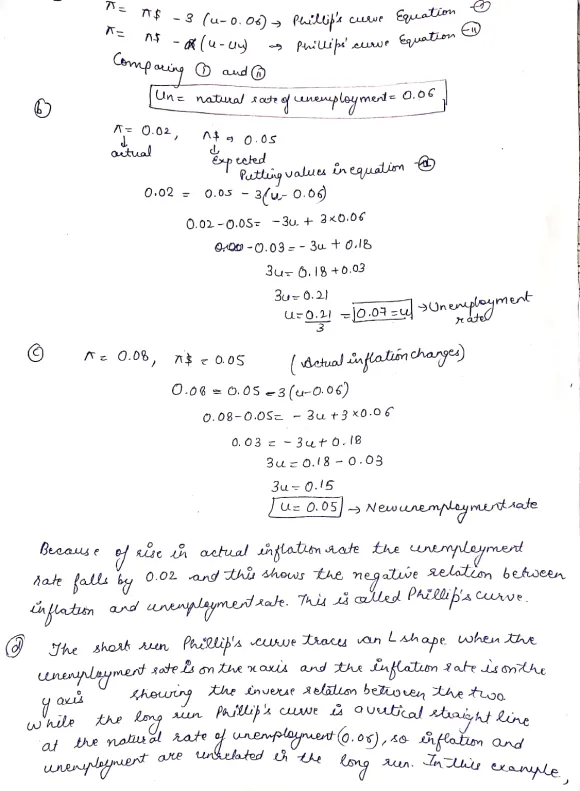 π = π$ - 3 (u-0.06) → Phillip's curve Equation - I
π = π$ - α (u - Un) → Phillips' curve Equation - II
Comparing I and II
Un = natural rate of unemployment = 0.06
(b)
π = 0.02, π$ → 0.05
↓ actual ↓ Expected
Putting values in equation - II
0.02 = 0.05 - 3(u - 0.06)
0.02 - 0.05 = -3u + 3×0.06
-0.03 = -3u + 0.18
3u = 0.18 + 0.03
3u = 0.21
u = 0.21/3 = 0.07 = u → Unemployment rate
(c) π = 0.08, π$ = 0.05 (Actual inflation changes)
0.08 = 0.05 - 3(u-0.06)
0.08-0.05 = - 3u + 3×0.06
0.03 = - 3u + 0.18
3u = 0.18 - 0.03
3u = 0.15
u = 0.05 → New unemployment rate
Because of rise in actual inflation rate the unemployment
rate falls by 0.02 and this shows the negative relation between
inflation and unemployment rate. This is called Phillip's curve.
(d) The short run Phillip's curve traces an L shape when the
unemployment rate is on the x axis and the inflation rate is on the
y axis showing the inverse relation between the two
while the long run Phillip's curve is a vertical straight line
at the natural rate of unemployment (0.06), so inflation and
unemployment are unrelated in the long run. In this example,